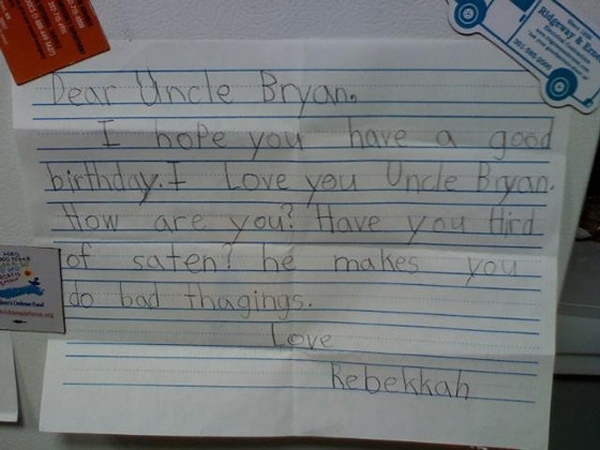 Ridgeway & 
Dear Uncle Bryan.
I hope you have a good
birthday. I Love you Uncle Bryan.
How are you? Have you Hird
of saten? he makes you
do bad thagings.
Love
Rebekkah